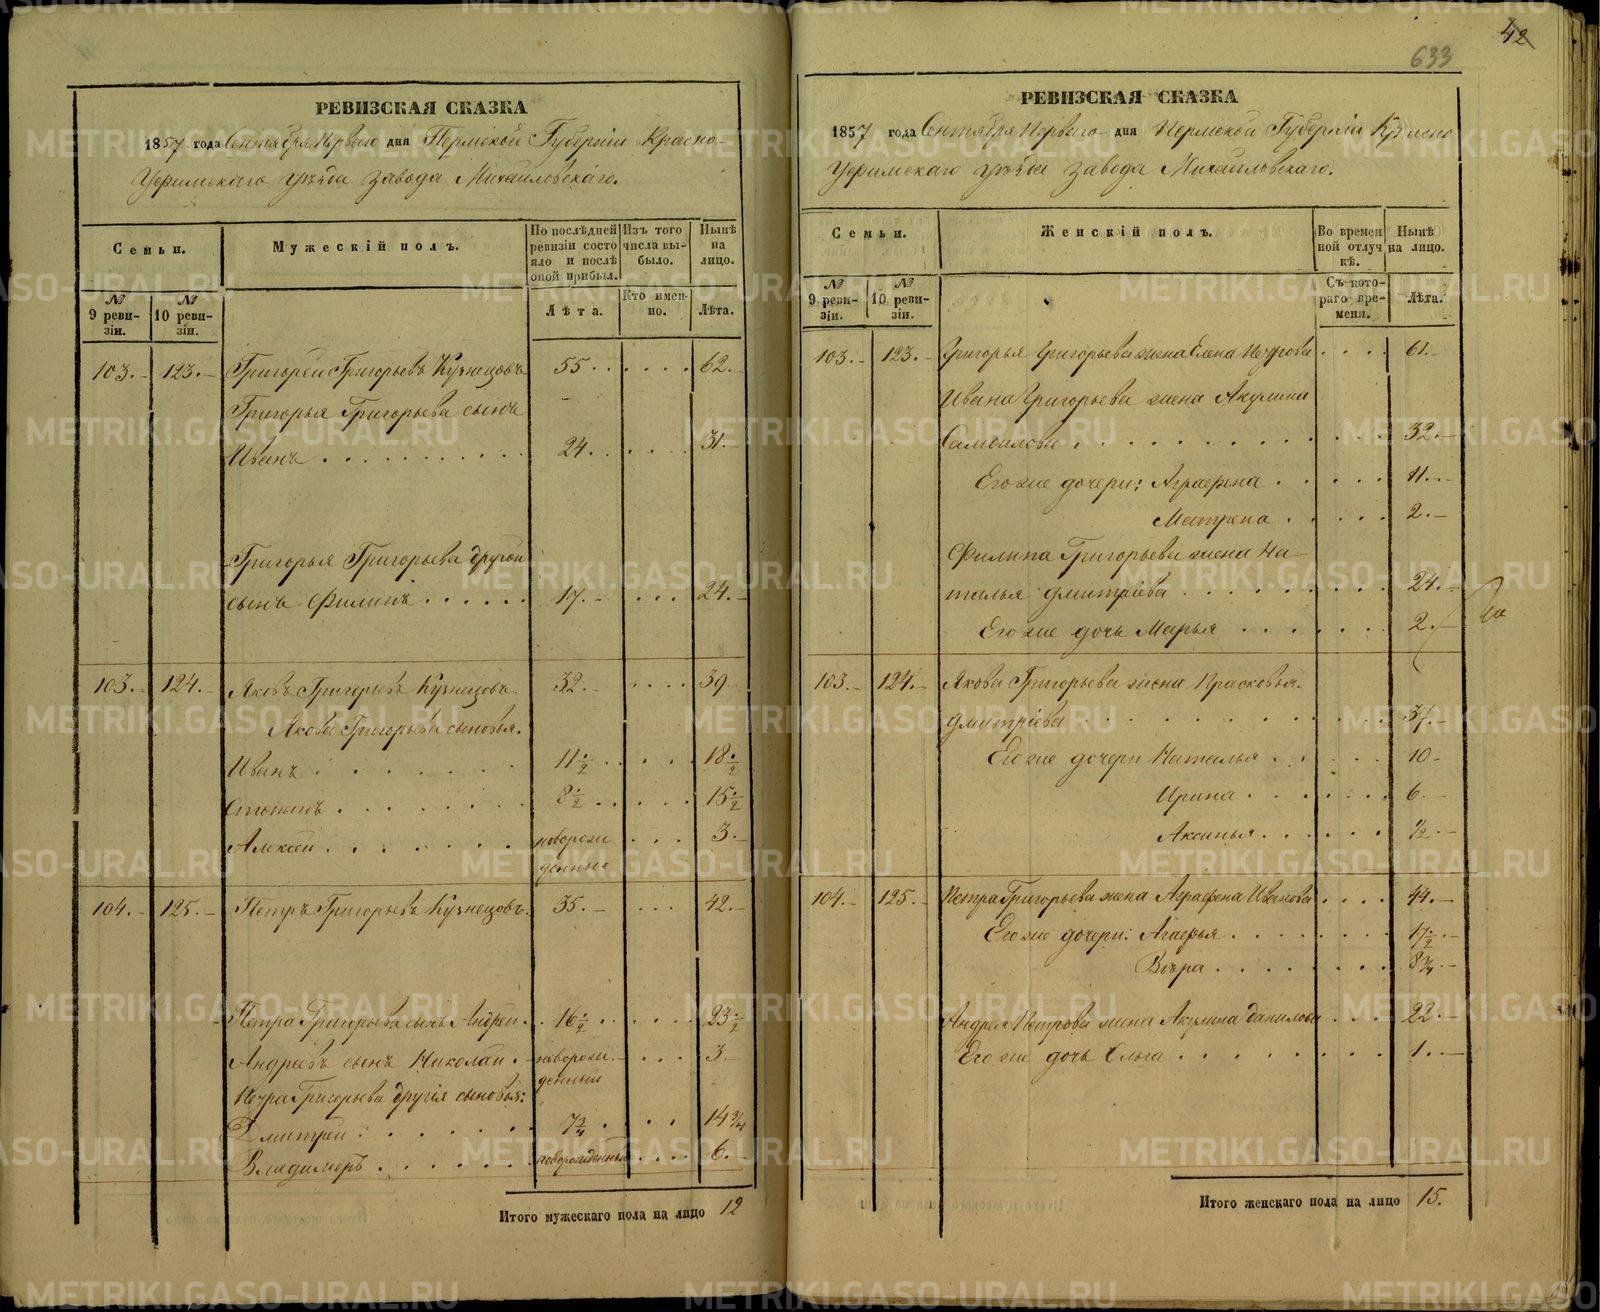 РЕВИЗСКАЯ СКАЗКА
1857 года Сентября Перваго дня Пермской Губерніи Красно-
Уфимскаго уѣзда завода Михайловскаго.
Семьи. Мужескій полъ. По послѣдней ревизіи состояло и послѣ оной прибыл. Изъ того числа выбыло. Нынѣ на лицо.
№ 9 ревизіи. № 10 ревизіи. Лѣта. Кто именно. Лѣта.
103. 123. Григорей Григорьевъ Кузнецовъ 55 62.
Григорья Григорьева сынъ
Иванъ 24 31.
Григорья Григорьева другой
сынъ Филипъ 17. 24.
103. 124. Яковъ Григорьевъ Кузнецовъ 32. 39
Якова Григорьева сыновья.
Иванъ 11 1/2 18 1/2
Степанъ 8 1/2 15 1/2
Алексей новорож 3.
денные
104. 125. Петръ Григорьевъ Кузнецовъ. 35. 42.
Петра Григорьева сынъ Андрей 16 1/2 23 1/2
Андреевъ сынъ Николай новорож 3
денный
Петра Григорьева другія сыновья:
Дмитрей 7 3/4 14 3/4
Владимеръ новорожденный 6.
Итого мужескаго пола на лицо 12
42
633
РЕВИЗСКАЯ СКАЗКА
1857 года Сентября Перваго дня Пермской Губерніи Красно
Уфимскаго уѣзда завода Михайловскаго.
Семьи. Женскій полъ. Во временной отлучкѣ. Нынѣ на лицо.
№ 9 ревизіи. № 10 ревизіи. Съ котораго времени. Лѣта.
103. 123. Григорья Григорьева жена Елена Петрова 61.
Ивана Григорьева жена Акулина
Самойлова 32.
Его же дочери: Аграфена 11.
Матрена 2.
Филипа Григорьева жена На-
талья Дмитріева 24.
Его же дочь Марья 2.
103. 124. Якова Григорьева жена Прасковья.
Дмитріева 37.
Его же дочери Наталья 10
Ирина 6.
Аксинья 1/2
104. 125. Петра Григорьева жена Аграфена Иванова 44.
Его же дочери: Агафья 17 1/2
Вѣра 8 3/4
Андрея Петрова жена Акулина Данилова 22.
Его же дочь Ольга 1.
Итого женскаго пола на лицо 15.
METRIKI.GASO-URAL.RU